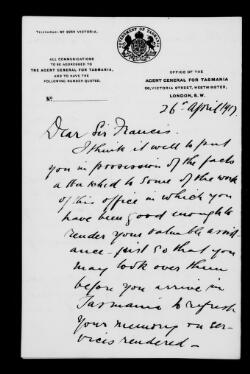 ALL COMMUNICATIONS
TO BE ADDRESSED TO
THE AGENT GENERAL FOR TASMANIA
AND TO HAVE THE
FOLLOWING NUMBER QUOTED.
No
OFFICE OF THE
AGENT GENERAL FOR TASMANIA
VICTORIA STREET, WESTMINSTER,
LONDON, S.W.
26th April 1917.
Dear Sir Francis.
I think it well to put
you in possession of the facts
attached to some of the work
of this office in which you
have been good enough to
render your valuable assist
ance - just so that you
may look over them
before you arrive in
Tasmania to refresh
your memory on ser-
vices rendered -